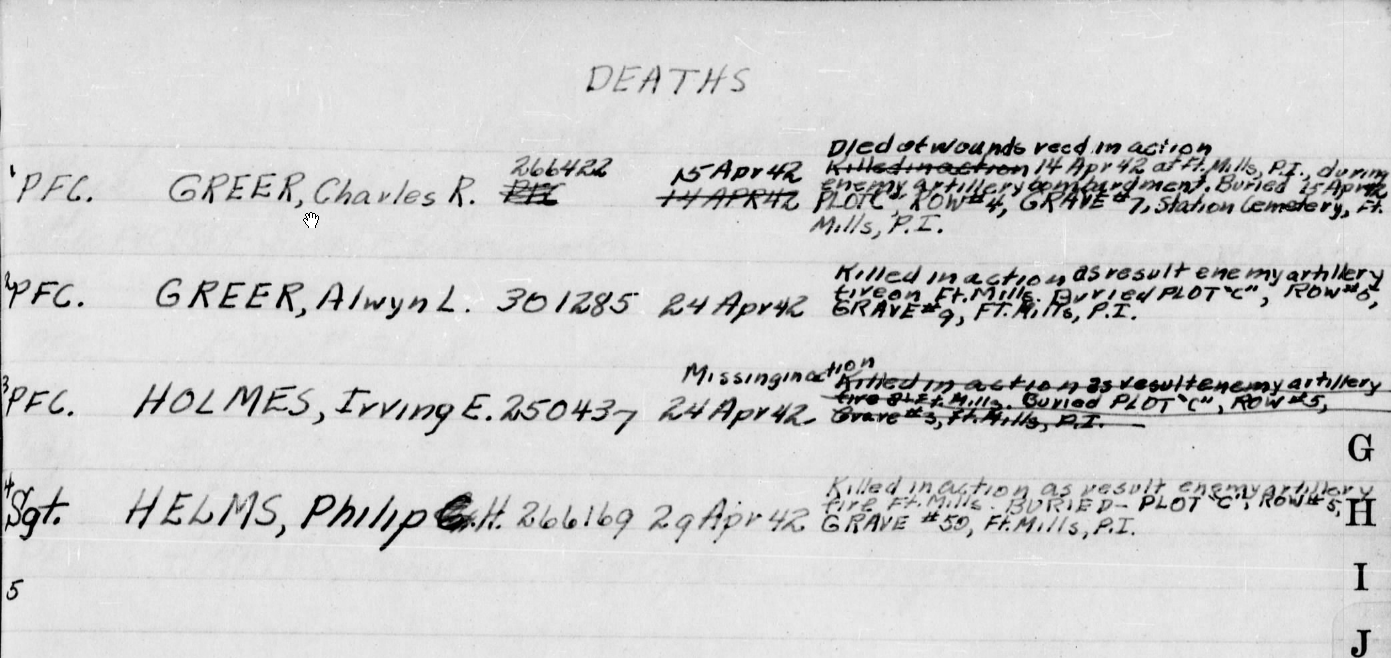 DEATHS
Died of wounds recd in action
1 PFC. GREER, Charles R. 266422 15 Apr 42 Killed in action 14 Apr 42 at Ft. Mills, P.I., during
PFC 14 APR 42 enemy artillery bombardment. Buried 15 Apr 42
PLOT "C", ROW #4, GRAVE #7, Station Cemetery, Ft.
Mills, P.I.
Killed in action as result enemy artillery
2 PFC. GREER, Alwyn L. 301285 24 Apr 42 fire on Ft. Mills. Buried PLOT "C", ROW #5,
GRAVE #9, Ft. Mills, P.I.
Missing in action
Killed in action as result enemy artillery
3 PFC. HOLMES, Irving E. 250437 24 Apr 42. fire Ft. Mills. Buried PLOT "C", ROW #5,
Grave #3, Ft. Mills, P.I.
G
Killed in action as result enemy artillery
4 Sgt. HELMS, Philip H. 266169 29 Apr 42 fire Ft. Mills. BURIED- PLOT "C", ROW #5,
GRAVE #50, Ft. Mills, P.I.
H
I
5
J